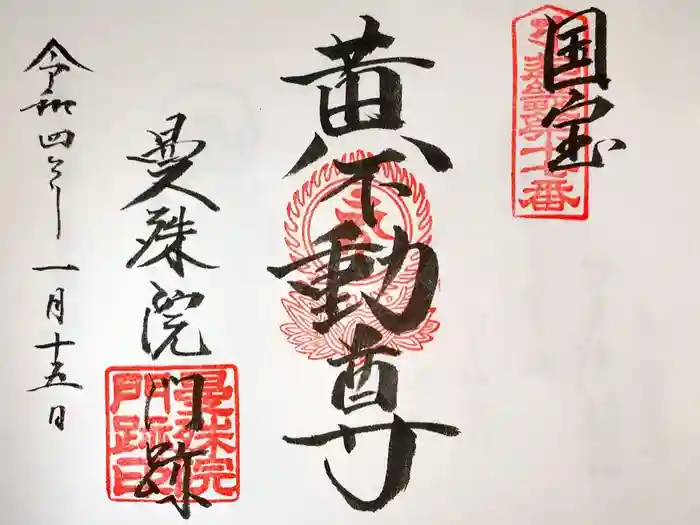 国宝
黄不動尊
曼殊院門跡
曼殊院門跡印
令和四年一月十五日